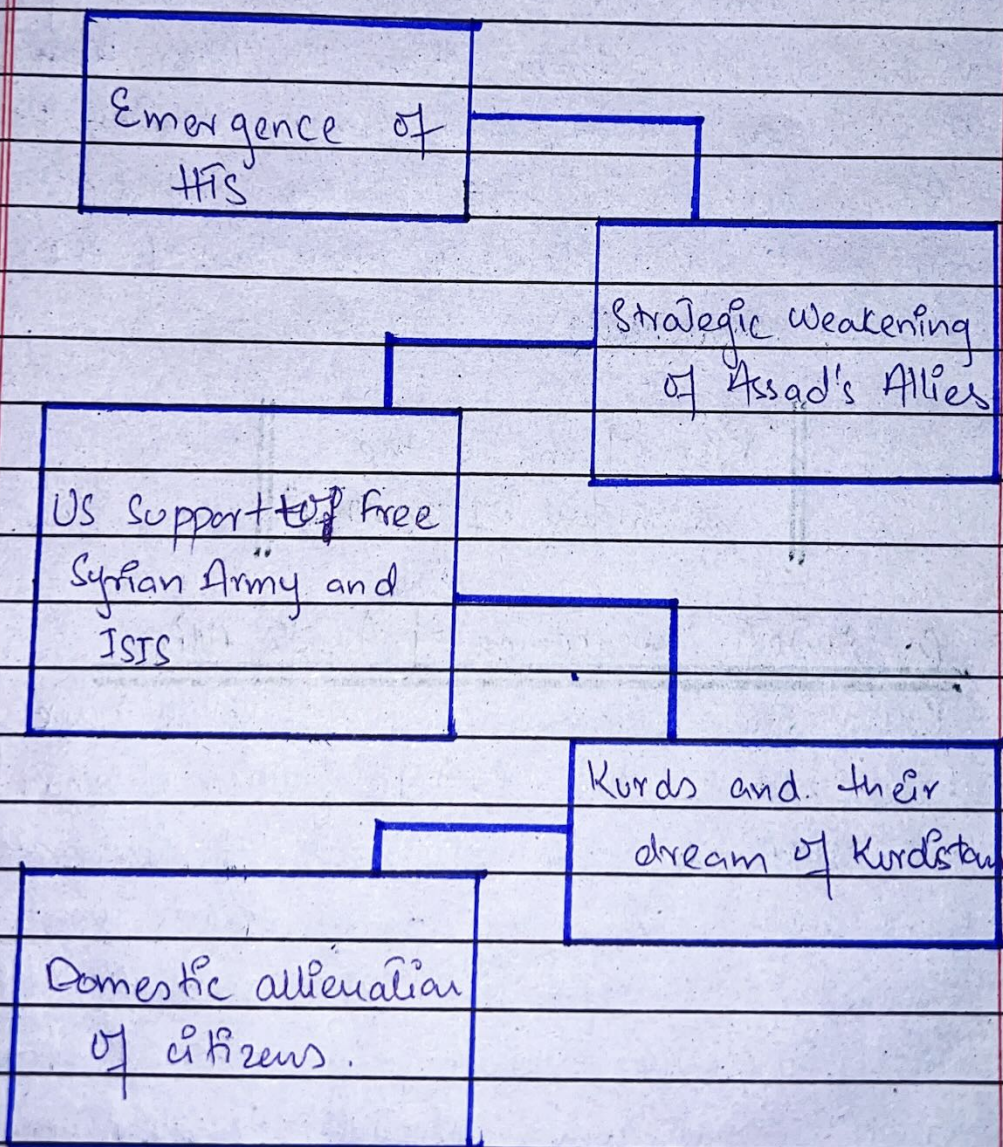 Emergence of
HTS
Strategic Weakening
of Assad's Allies
US Support of Free
Syrian Army and
ISIS
Kurds and their
dream of Kurdistan
Domestic allienation
of citizens.